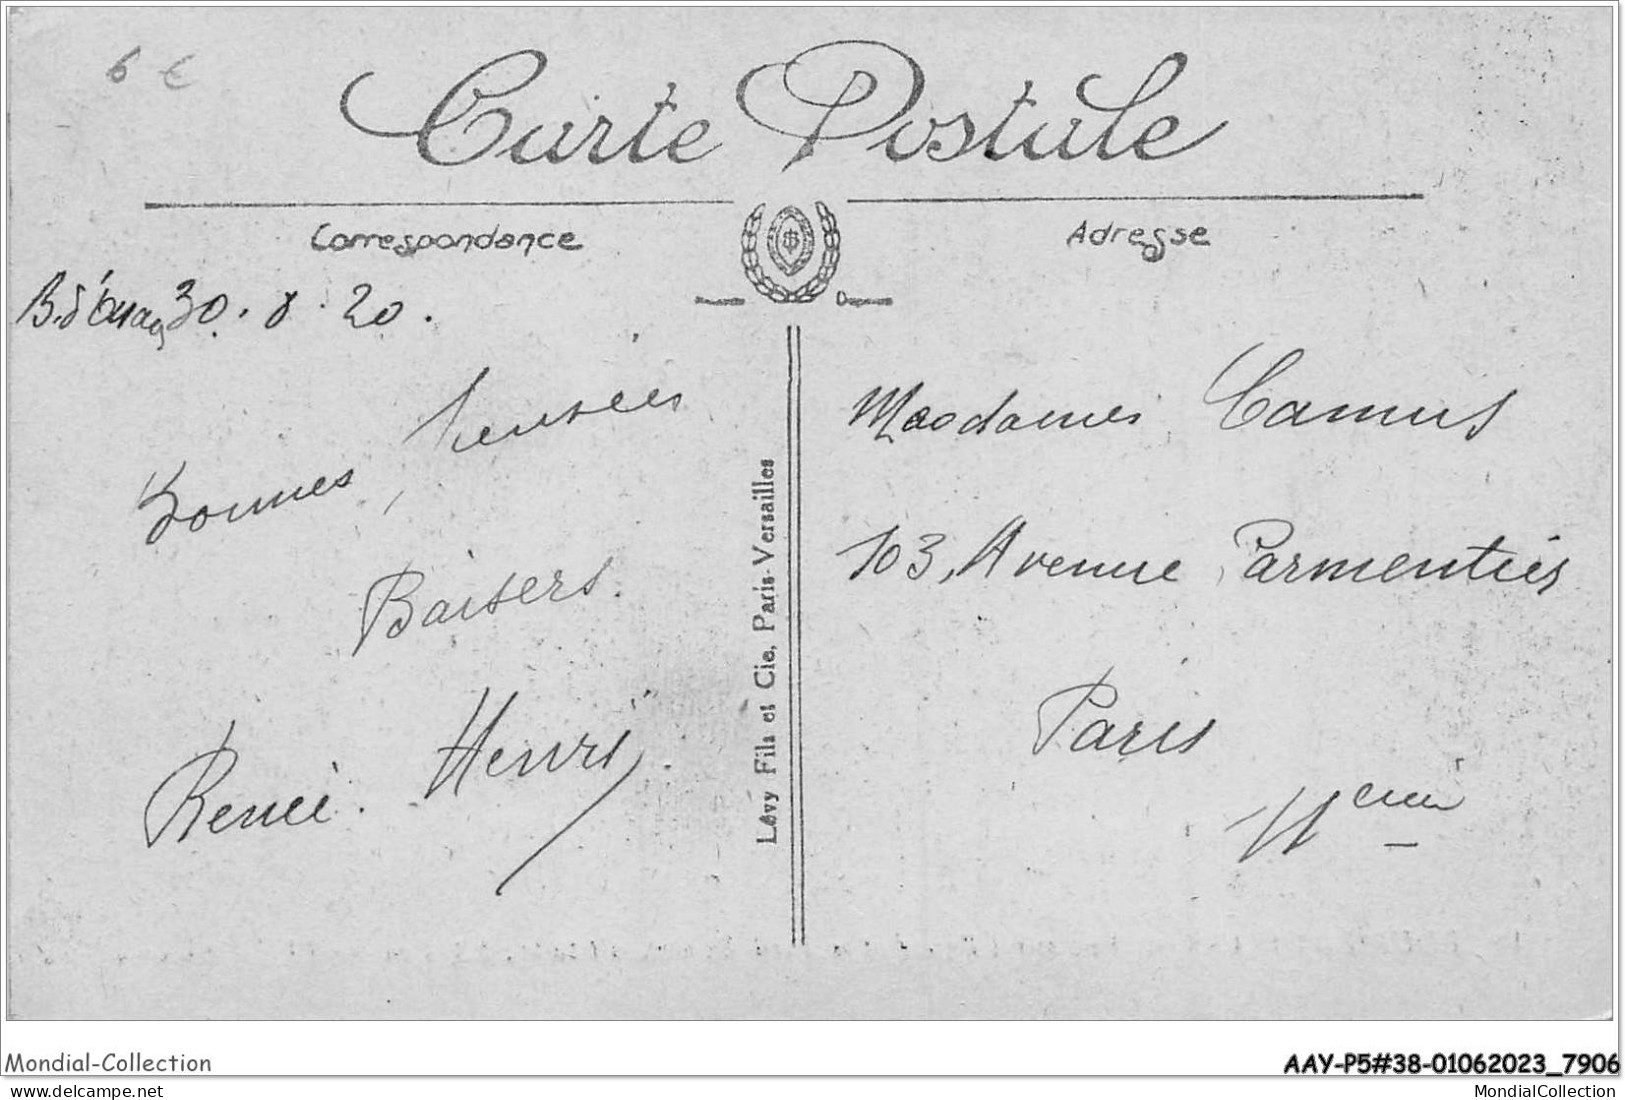 6 €
Carte Postale
Correspondance
Adresse
30.8.20.
Bonnes Pensées
Baisers.
Renée. Henri.
Lévy Fils et Cie, Paris-Versailles
Mesdames Camus
103, Avenue Parmentier
Paris
11eme
Mondial-Collection
AAY-P5#38-01062023_7906
www.delcampe.net
MondialCollection